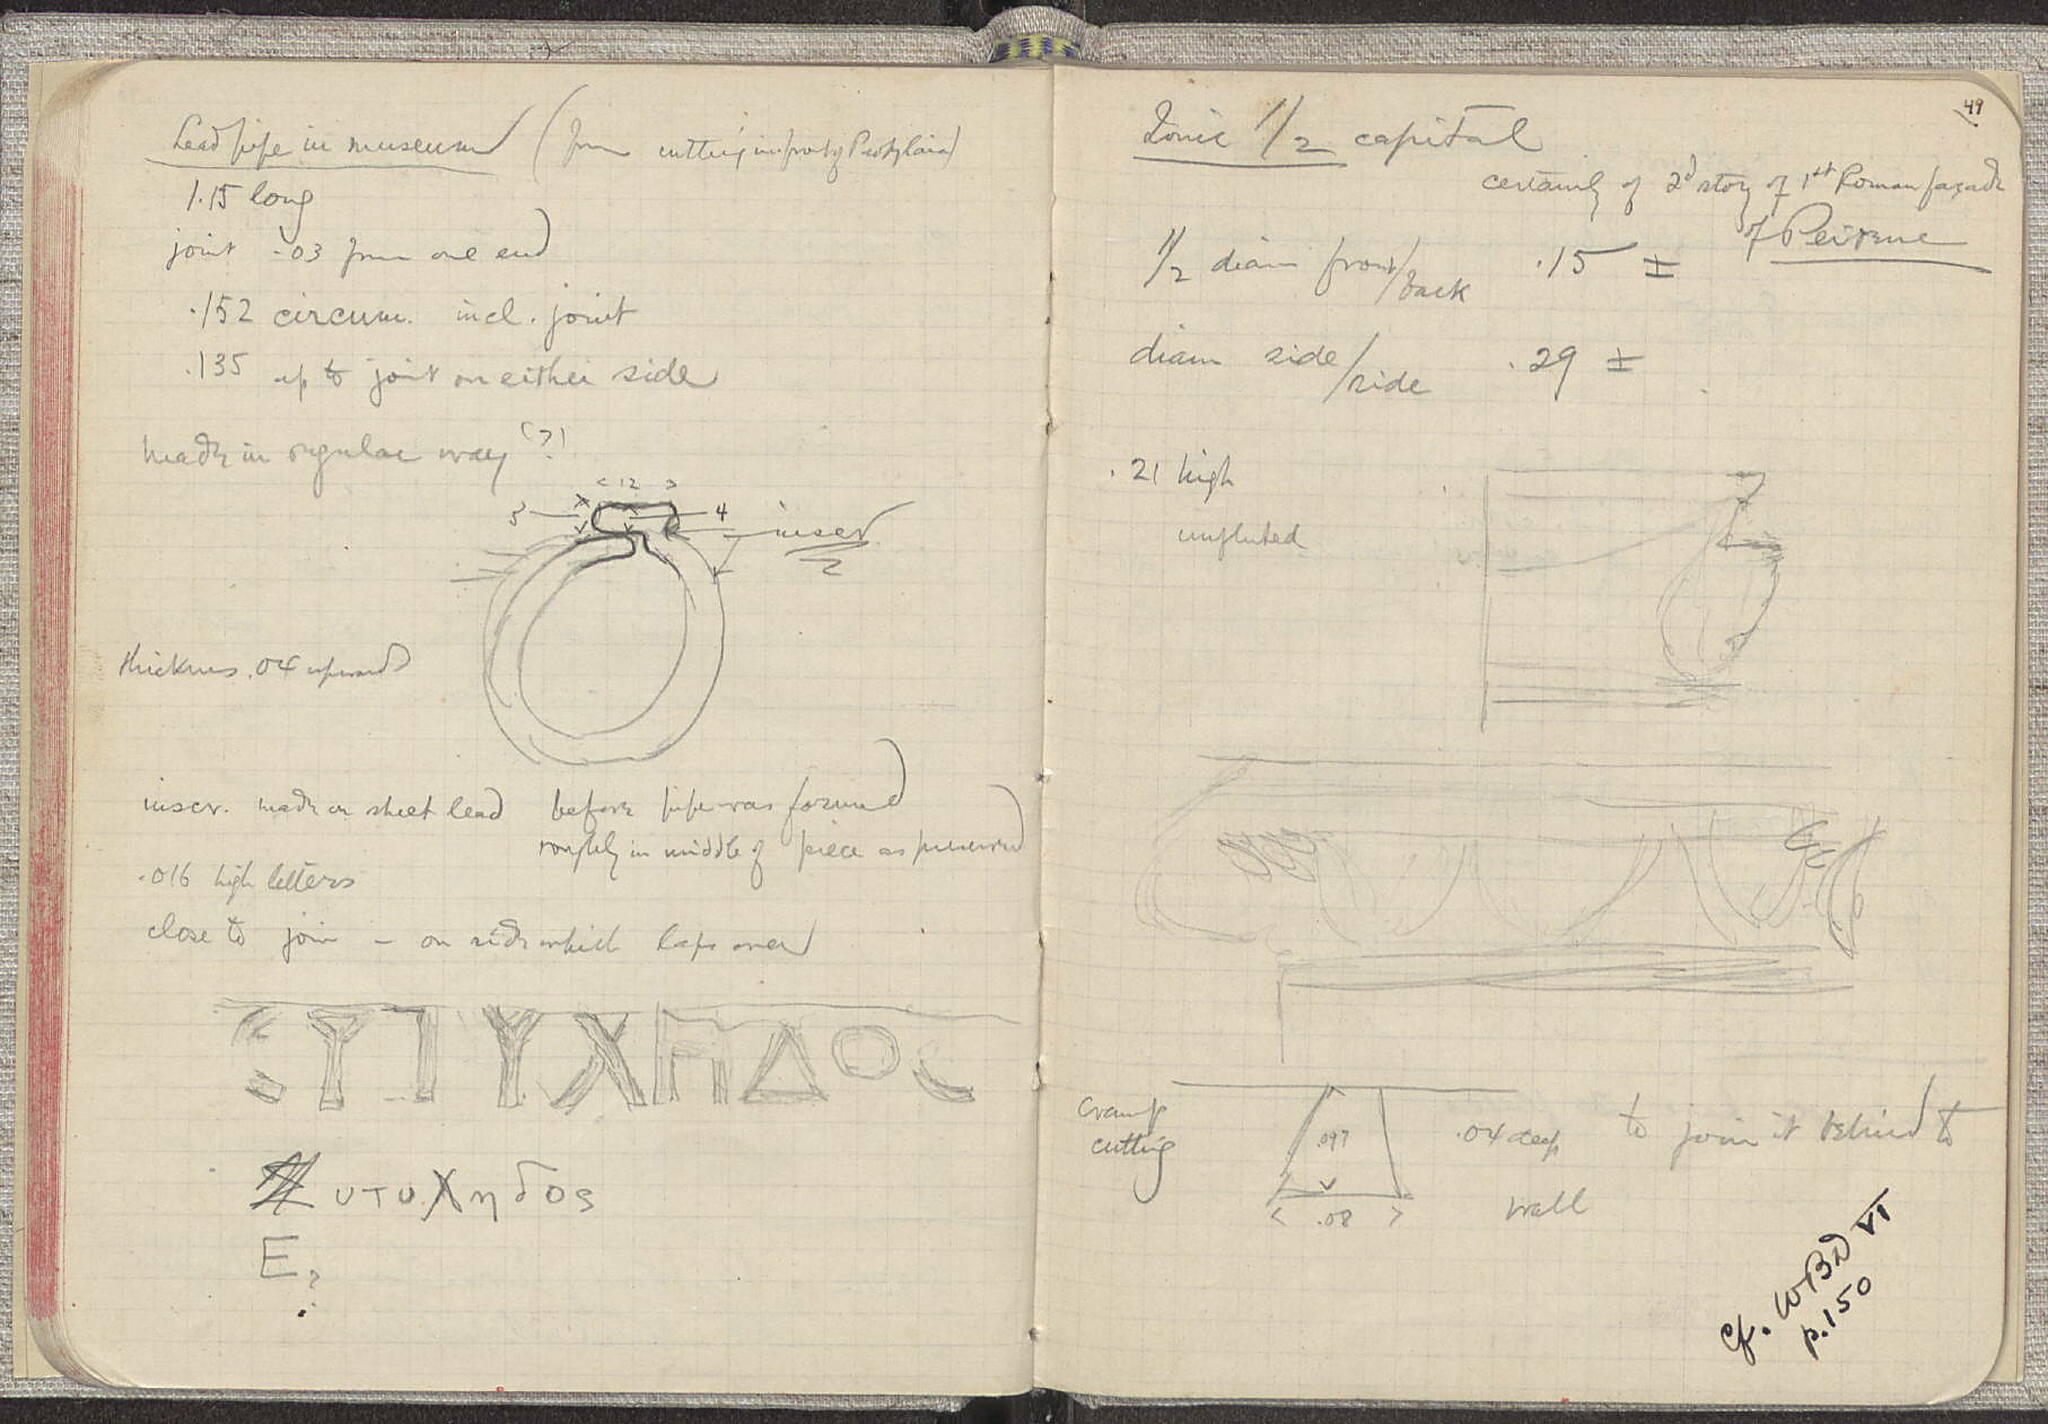 Lead pipe in museum (from cutting in front of Propylaia)
1.15 long
joint .03 from one end
.152 circum. incl. joint
.135 up to joint on either side
made in regular way (?)
< 12 >
3
4
inscr.
thickness .04 upwards
inscr. made on sheet lead before pipe was formed
roughly in middle of piece as preserved
.016 high letters
close to join – on side which laps over
ΥΧΗΔΟ
υτυχηδος
E ?
49
Ionic 1/2 capital
certainly of 2d story of 1st Roman façade
of Peirene
1/2 diam front/back .15 ±
diam side/side .29 ±
.21 high
unfluted
cramp
cutting
.097
.04 deep to join it behind to
< .08 >
wall
cf. WBD VI
p.150